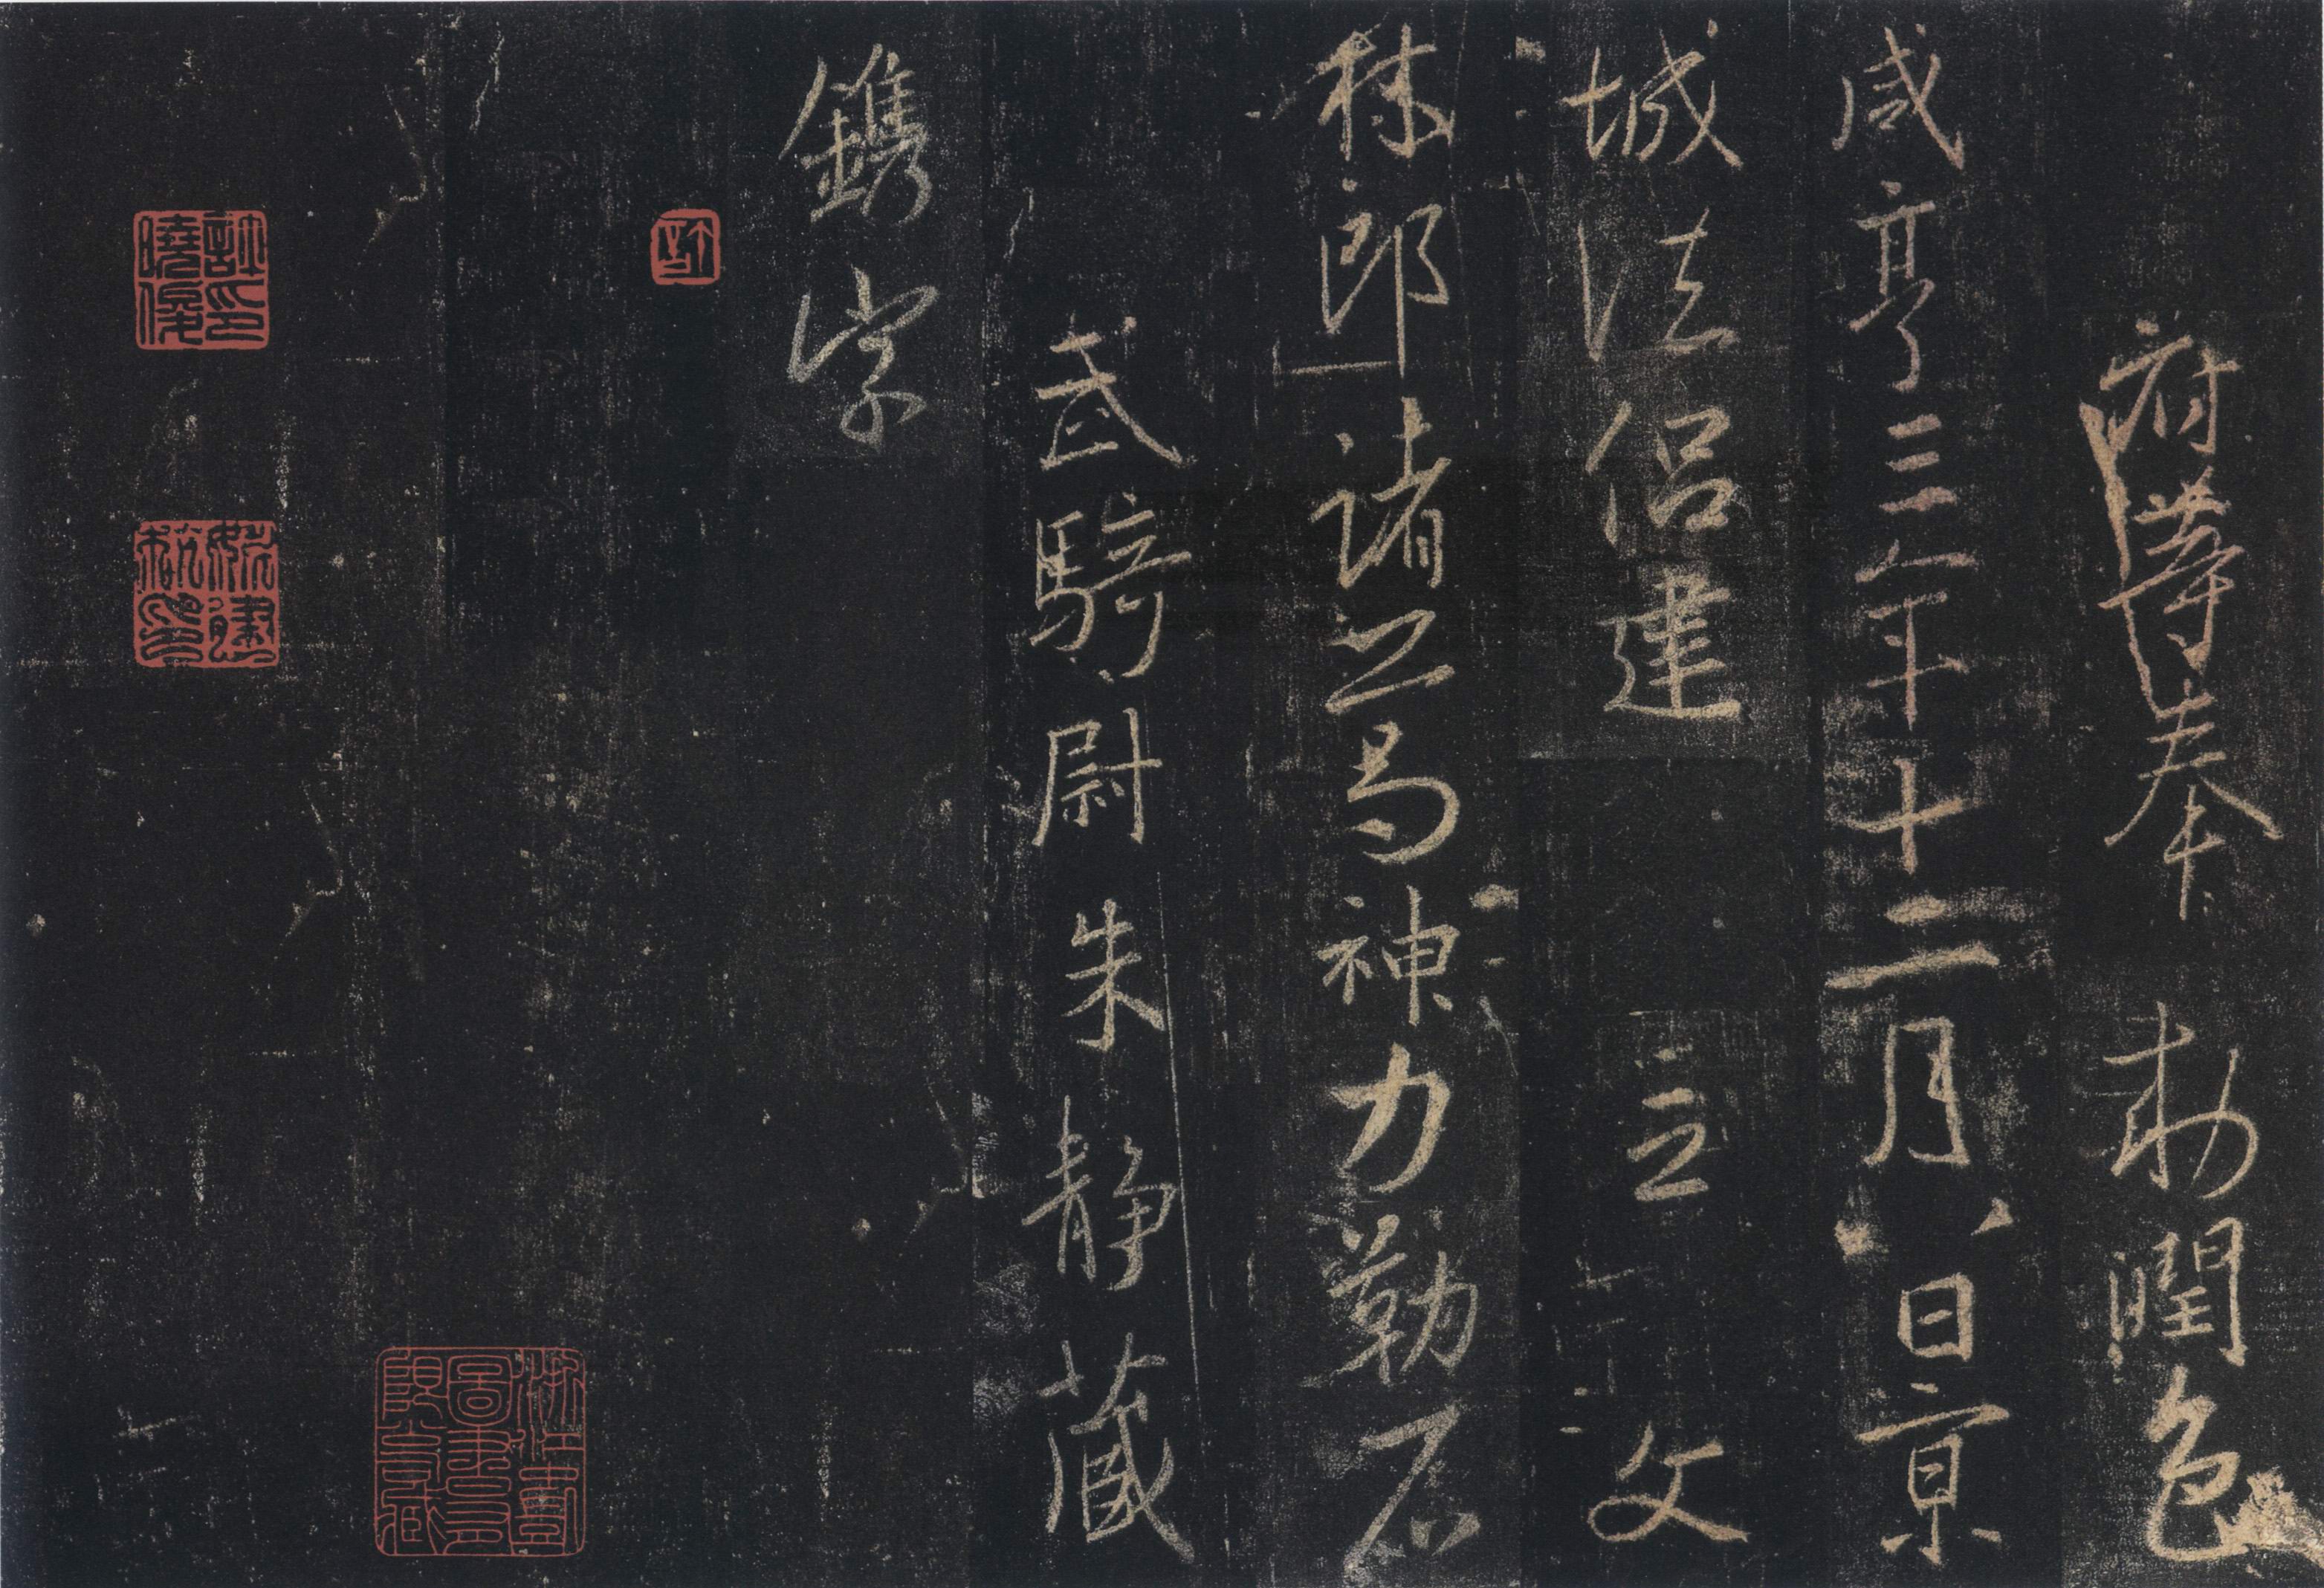 府等奉 勅潤色
咸亨三年十二月八日京
城法侶建立 文
林郎諸葛神力勒石
武騎尉朱静藏
鐫字
許